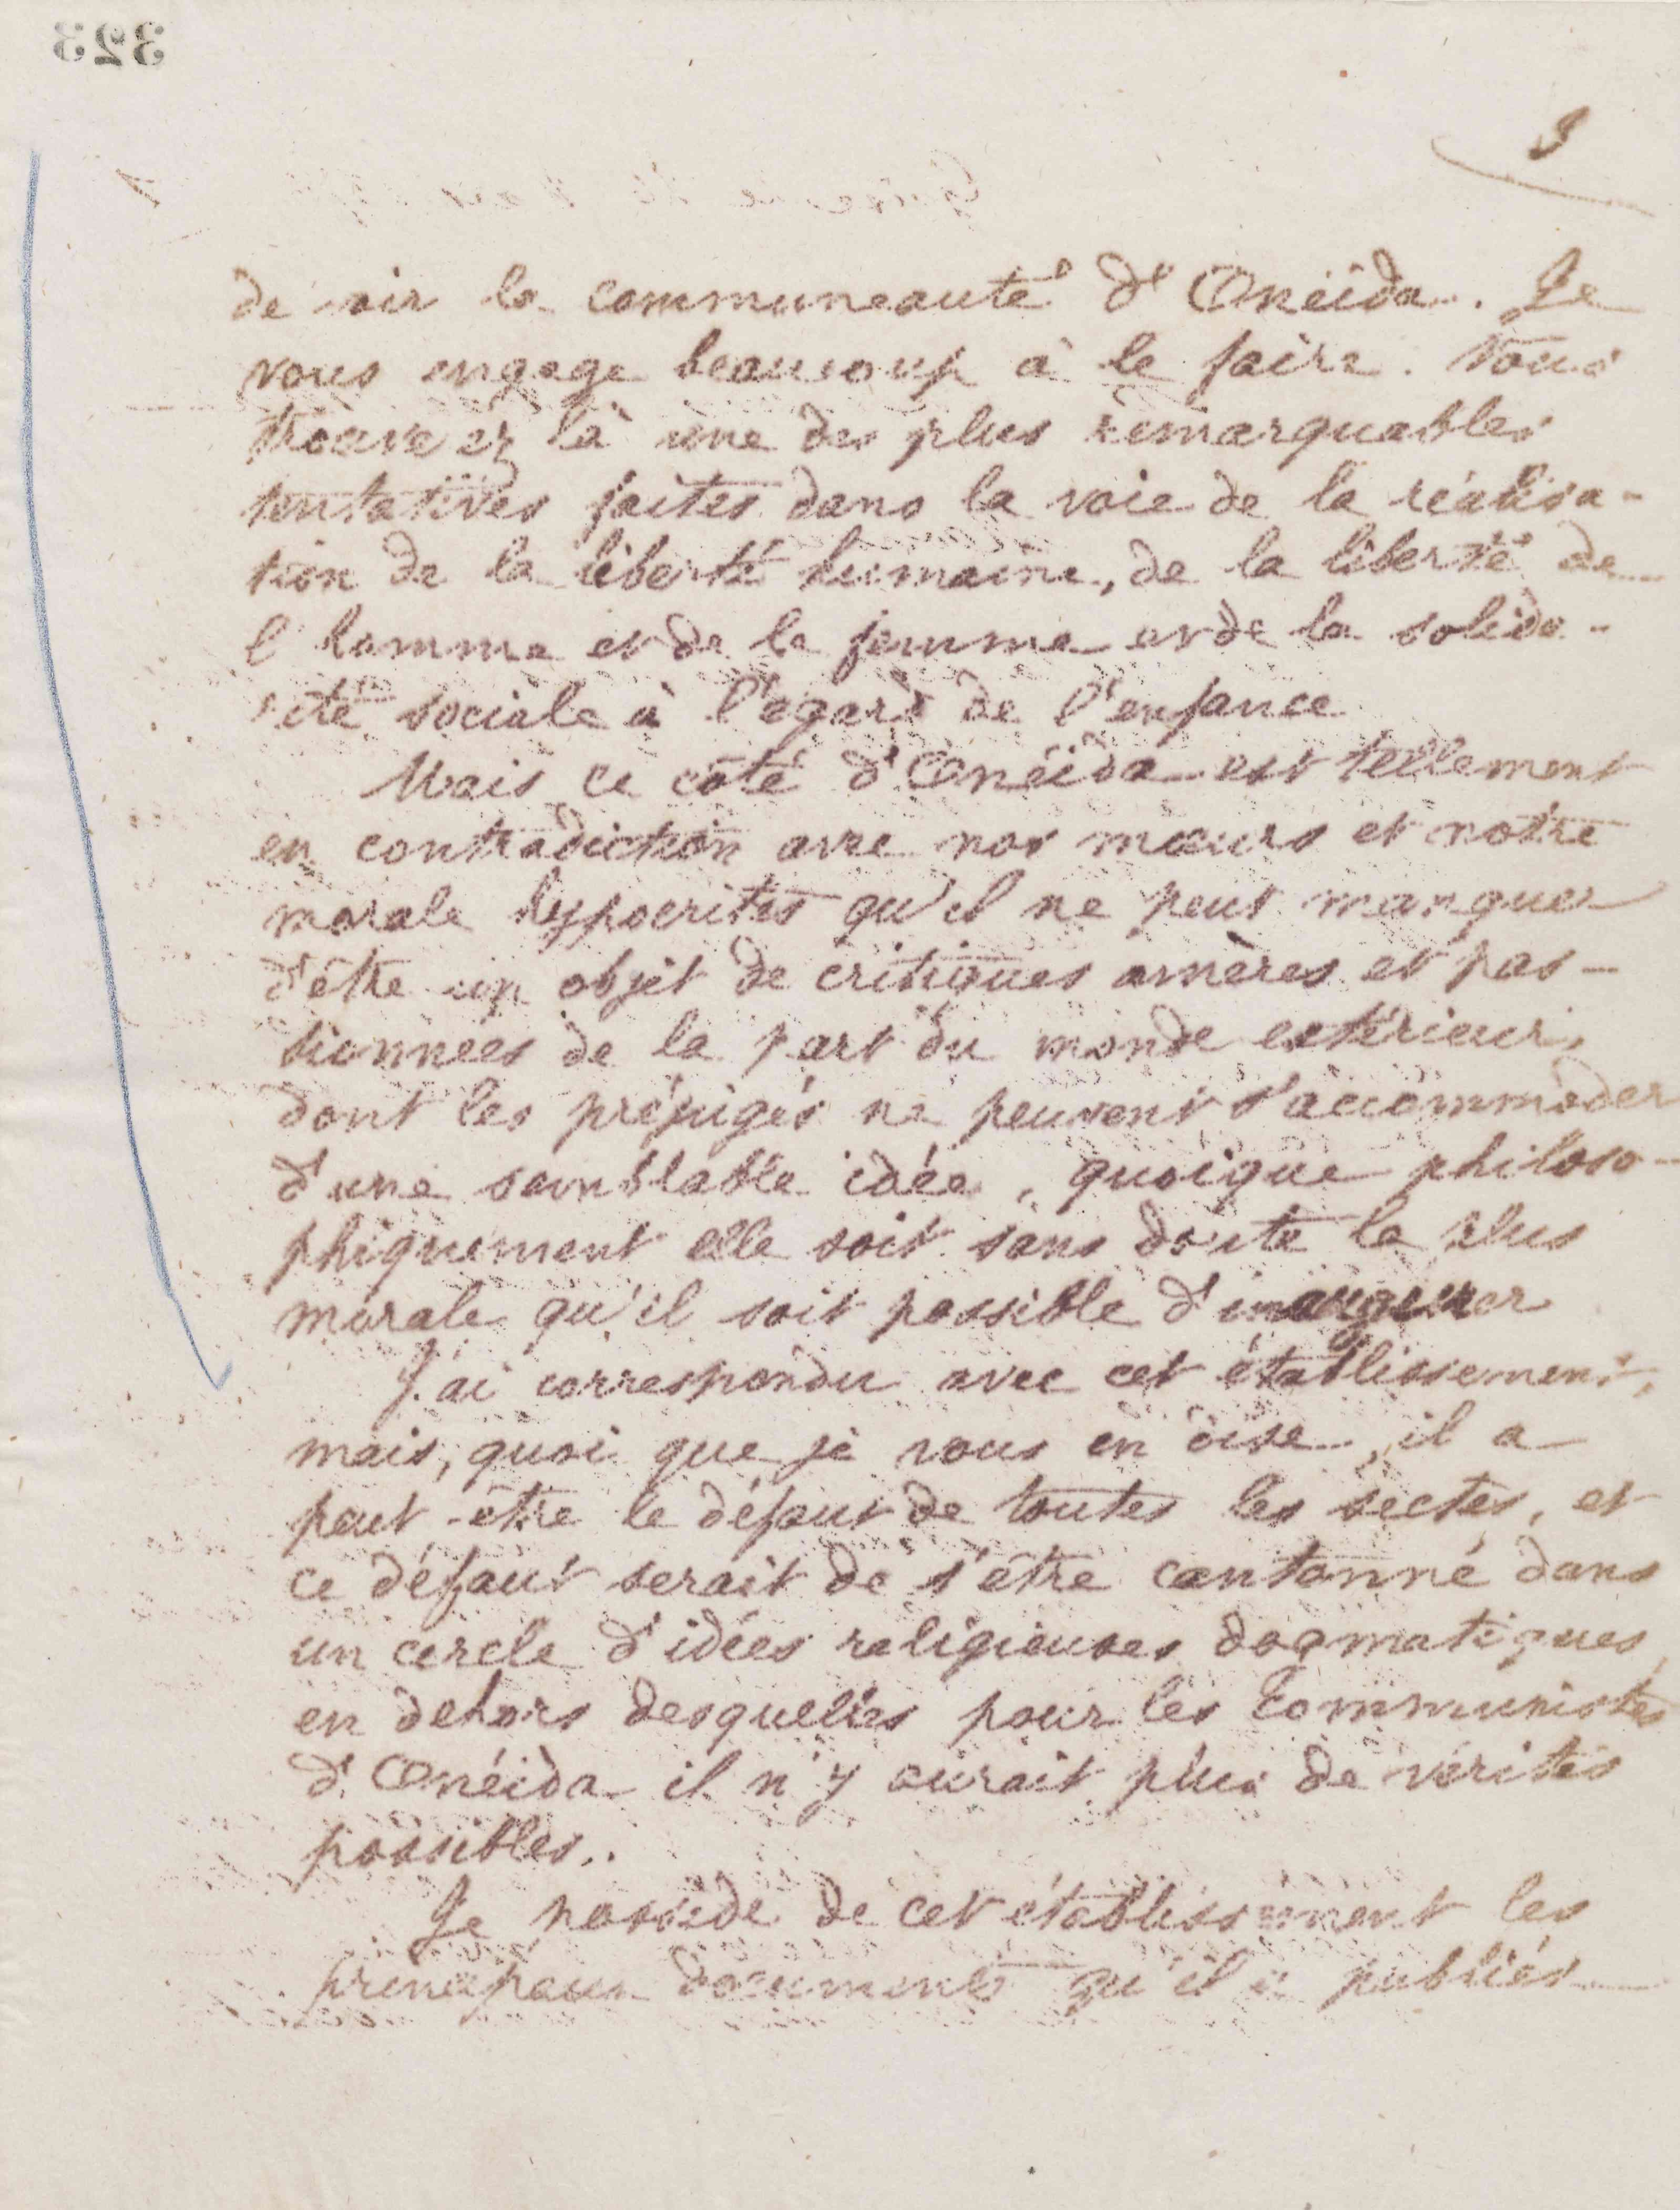 323
de voir la communeauté d'Onéida. Je
vous engage beaucoup à le faire. Vous
trouverez là une des plus remarquables
tentatives faites dans la voie de la réalisa-
tion de la liberté humaine, de la liberté de
l'homme et de la femme et de la solida-
rité sociale à l'égard de l'enfance
Mais ce côté d'Onéida est tellement
en contradiction avec nos mœurs et notre
morale hypocrites qu'il ne peut manquer
d'être un objet de critiques amères et pas-
sionnées de la part du monde extérieur,
dont les préjugés ne peuvent s'accommoder
d'une semblable idée, quoique philoso-
phiquement elle soit sans doute la plus
morale qu'il soit possible d'inaugurer
J'ai correspondu avec cet établissement,
mais, quoi que je vous en dise, il a
peut-être le défaut de toutes les sectes, et
ce défaut serait de s'être cantonné dans
un cercle d'idées religieuses dogmatiques,
en dehors desquelles pour les Communistes
d'Onéida il n'y aurait plus de vérités
possibles..
Je possède de cet établissement les
principaux documents qu'il a publiés